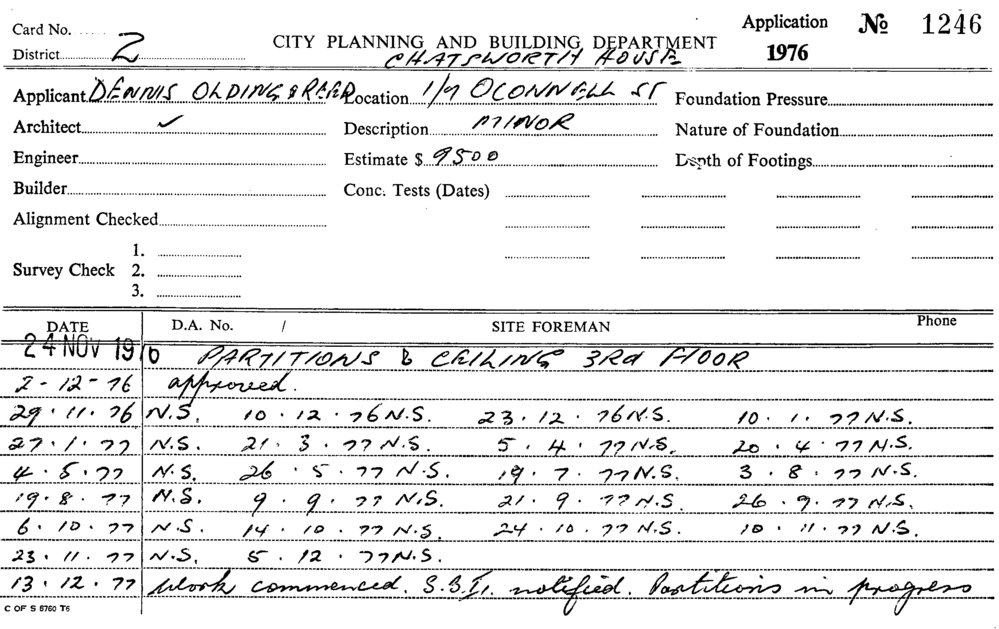 Card No. Application No 1246
District 2 CITY PLANNING AND BUILDING DEPARTMENT 1976
CHATSWORTH HOUSE
Applicant DENNIS OLDING & REED Location 1/7 OCONNELL ST Foundation Pressure
Architect ✓ Description MINOR Nature of Foundation
Engineer Estimate $ 9500 Depth of Footings
Builder Conc. Tests (Dates)
Alignment Checked
1.
Survey Check 2.
3.
DATE D.A. No. / SITE FOREMAN Phone
24 NOV 1976 PARTITIONS & CEILING 3RD FLOOR
2-12-76 approved.
29.11.76 N.S. 10.12.76 N.S. 23.12.76 N.S. 10.1.77 N.S.
27.1.77 N.S. 21.3.77 N.S. 5.4.77 N.S. 20.4.77 N.S.
4.5.77 N.S. 26.5.77 N.S. 19.7.77 N.S. 3.8.77 N.S.
19.8.77 N.S. 9.9.77 N.S. 21.9.77 N.S. 26.9.77 N.S.
6.10.77 N.S. 14.10.77 N.S. 24.10.77 N.S. 10.11.77 N.S.
23.11.77 N.S. 5.12.77 N.S.
13.12.77 Work commenced. S.B.I. notified. Partitions in progress
C OF S 6760 T6